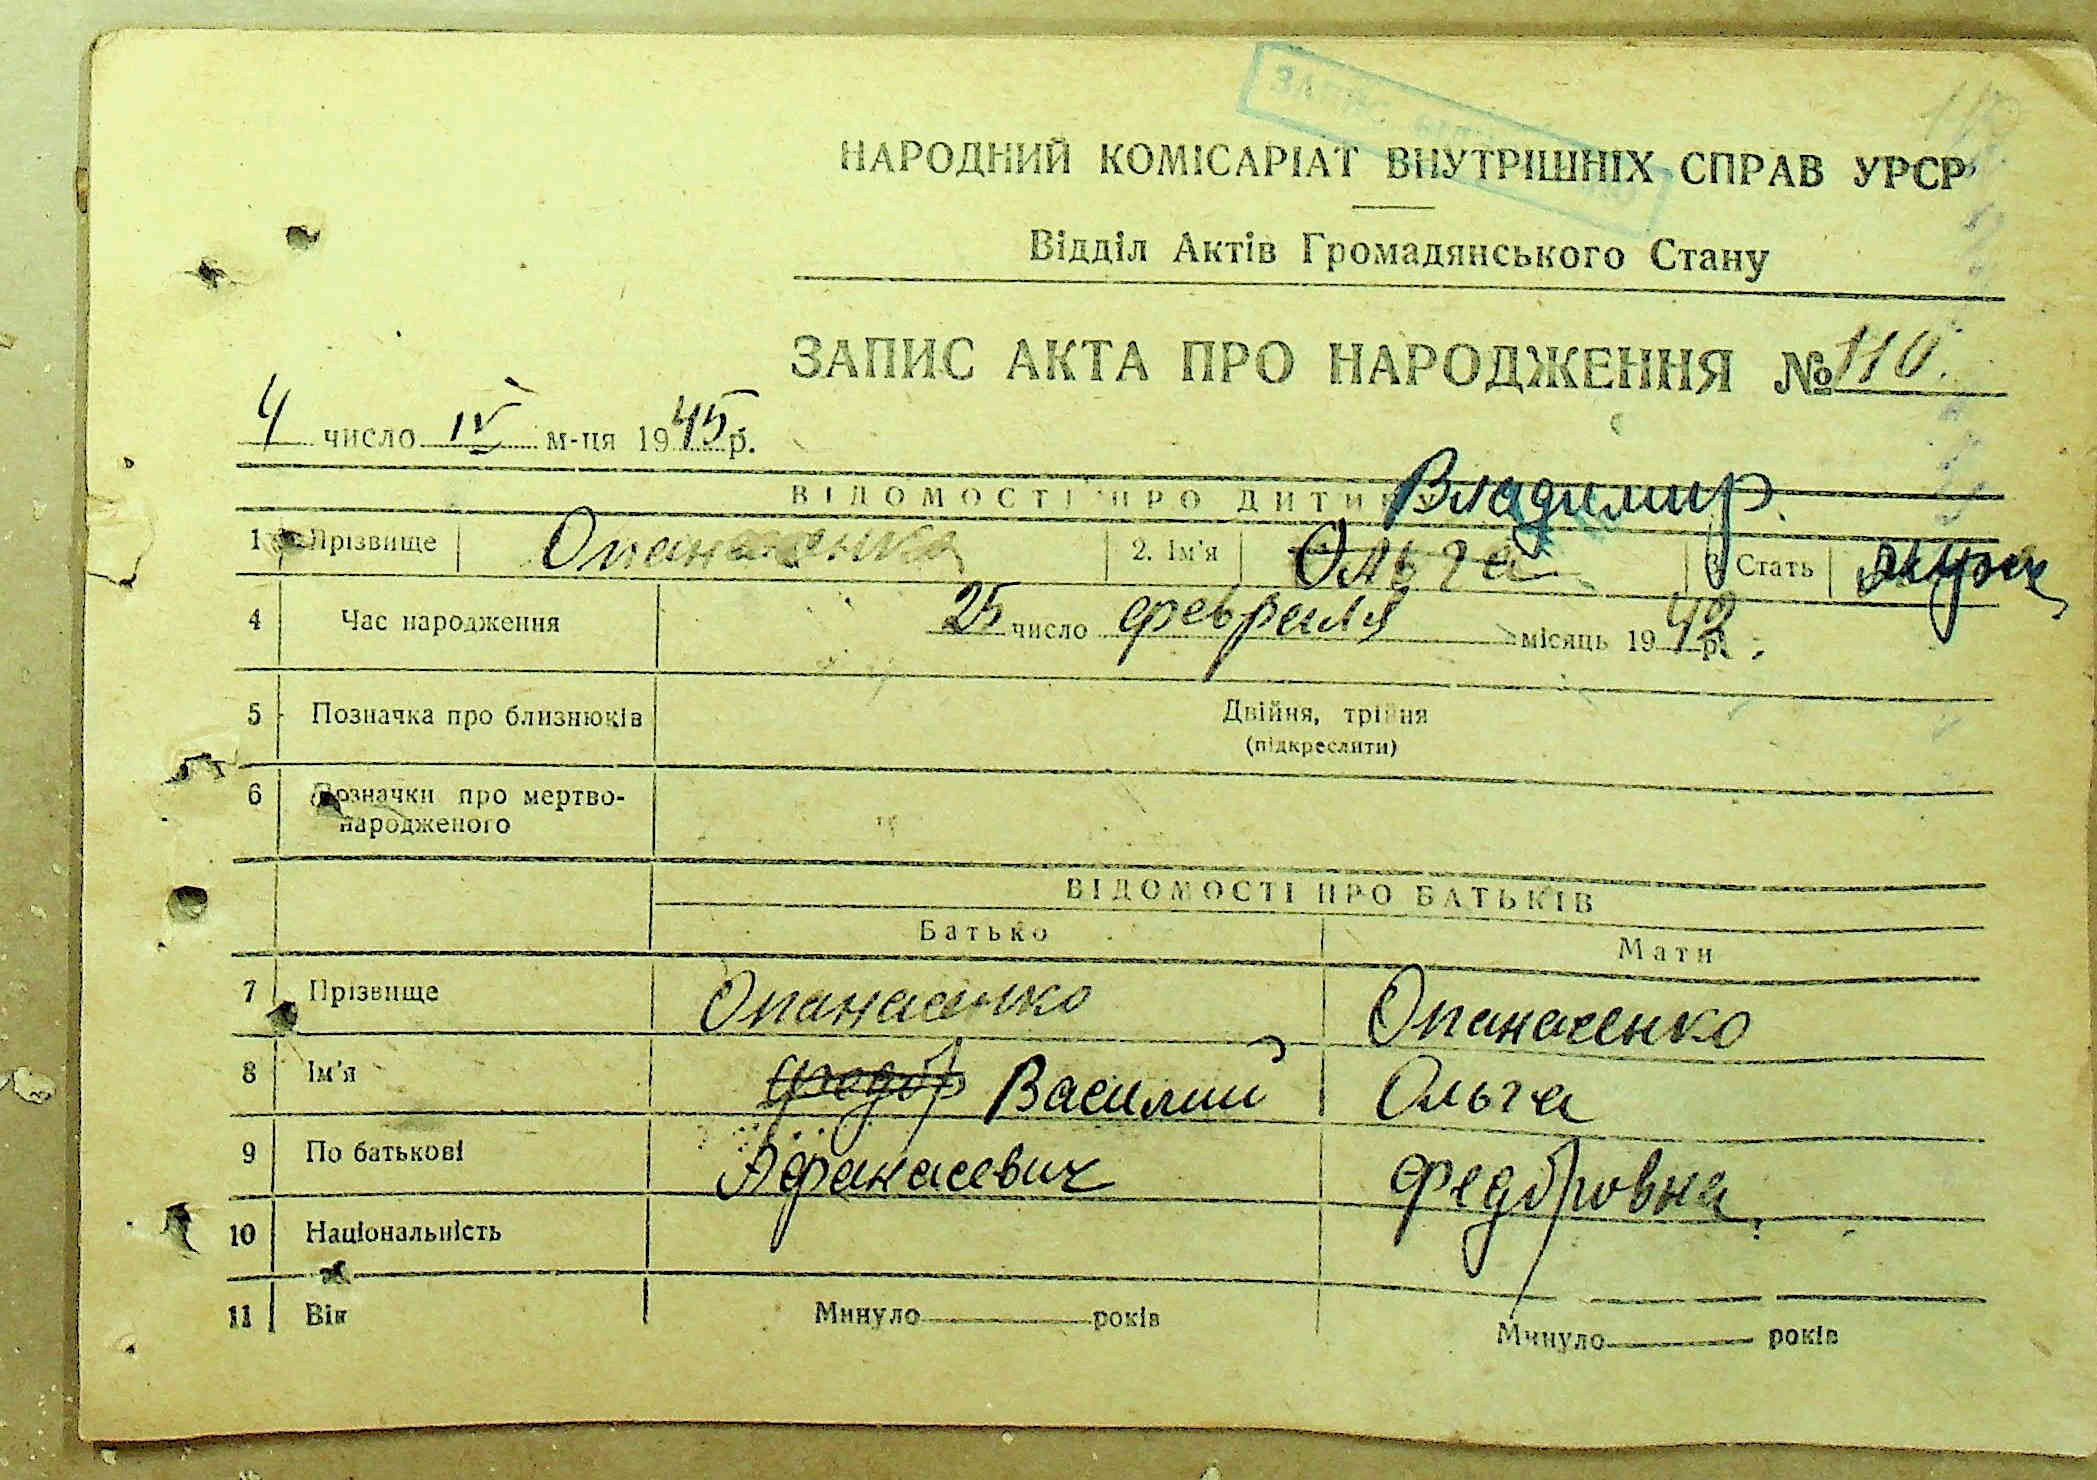 НАРОДНИЙ КОМІСАРІАТ ВНУТРІШНІХ СПРАВ УРСР
Відділ Актів Громадянського Стану
ЗАПИС АКТА ПРО НАРОДЖЕННЯ № 110.
4 число IV м-ця 1945 р.
Владимир
ВІДОМОСТІ ПРО ДИТИНУ
1 Прізвище Опанасенко 2. Ім'я Ольга 3. Стать муж
4 Час народження 25 число февраля місяць 1942 р.
5 Позначка про близнюків Двійня, трійня
(підкреслити)
6 Позначки про мертво-
народженого
ВІДОМОСТІ ПРО БАТЬКІВ
Батько Мати
7 Прізвище Опанасенко Опанасенко
8 Ім'я Федор Василий Ольга
9 По батькові Афанасевич Федоровна
10 Національність
11 Вік Минуло років Минуло років